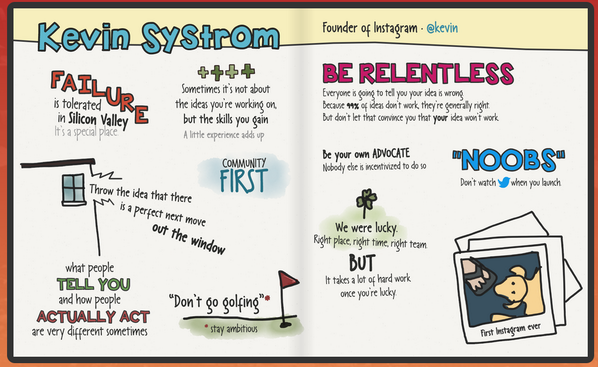 Kevin Systrom
Founder of Instagram · @kevin
FAILURE
is tolerated
in Silicon Valley
It's a special place
Sometimes it's not about
the ideas you're working on,
but the skills you gain
A little experience adds up
COMMUNITY
FIRST
Throw the idea that there
is a perfect next move
out the window
what people
TELL YOU
and how people
ACTUALLY ACT
are very different sometimes
"Don't go golfing"*
* stay ambitious
BE RELENTLESS
Everyone is going to tell you your idea is wrong
Because 99% of ideas don't work, they're generally right.
But don't let that convince you that your idea won't work.
Be your own ADVOCATE
Nobody else is incentivized to do so
"NOOBS"
Don't watch when you launch
We were lucky.
Right place, right time, right team.
BUT
It takes a lot of hard work
once you're lucky.
First Instagram ever